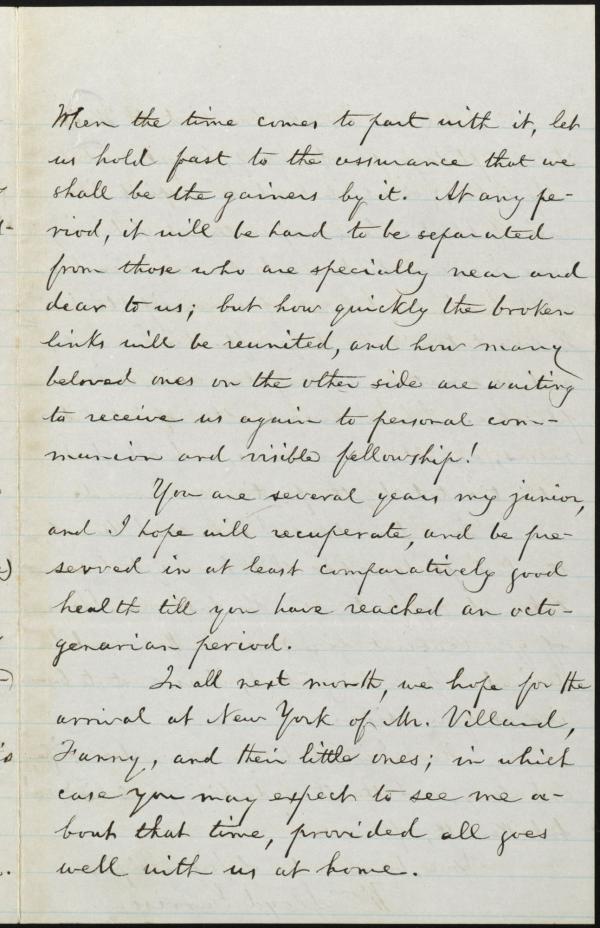 When the time comes to part with it, let
us hold fast to the assurance that we
shall be the gainers by it. At any pe-
riod, it will be hard to be separated
from those who are specially near and
dear to us; but how quickly the broken
links will be reunited, and how many
beloved ones on the other side are waiting
to receive us again to personal com-
munion and visible fellowship!
You are several years my junior,
and I hope will recuperate, and be pre-
served in at least comparatively good
health till you have reached an octo-
genarian period.
In all next month, we hope for the
arrival at New York of Mr. Villard,
Fanny, and their little ones; in which
case you may expect to see me a-
bout that time, provided all goes
well with us at home.